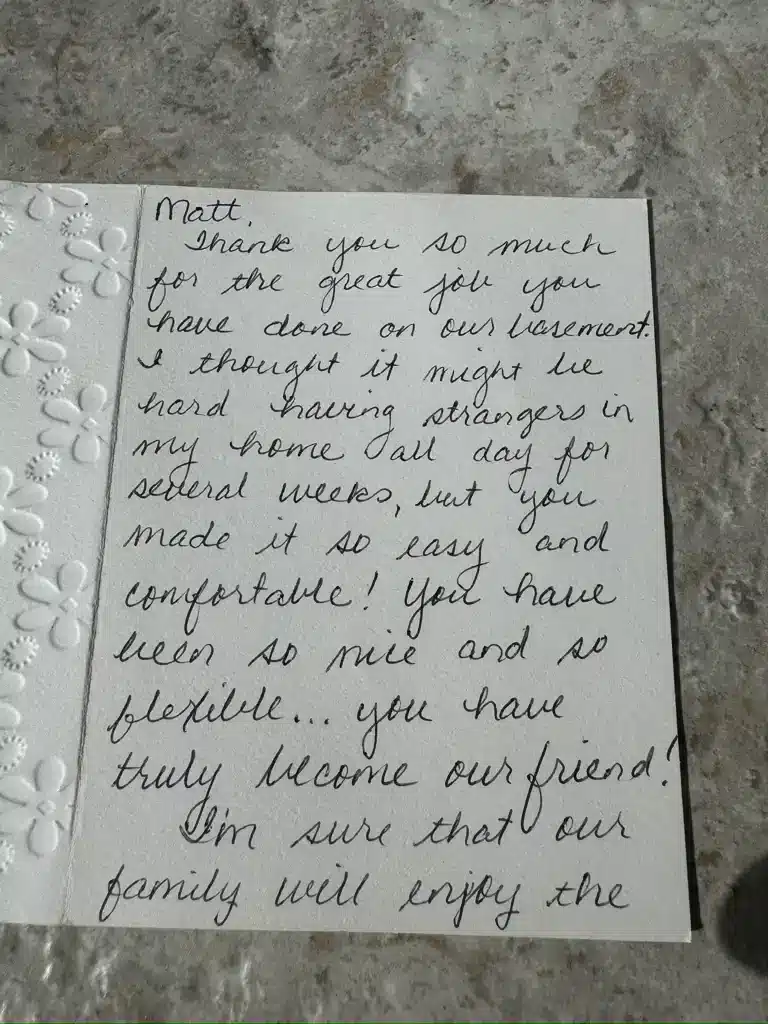 Matt,
Thank you so much
for the great job you
have done on our basement.
I thought it might be
hard having strangers in
my home all day for
several weeks, but you
made it so easy and
comfortable! You have
been so nice and so
flexible... you have
truly become our friend!
I'm sure that our
family will enjoy the